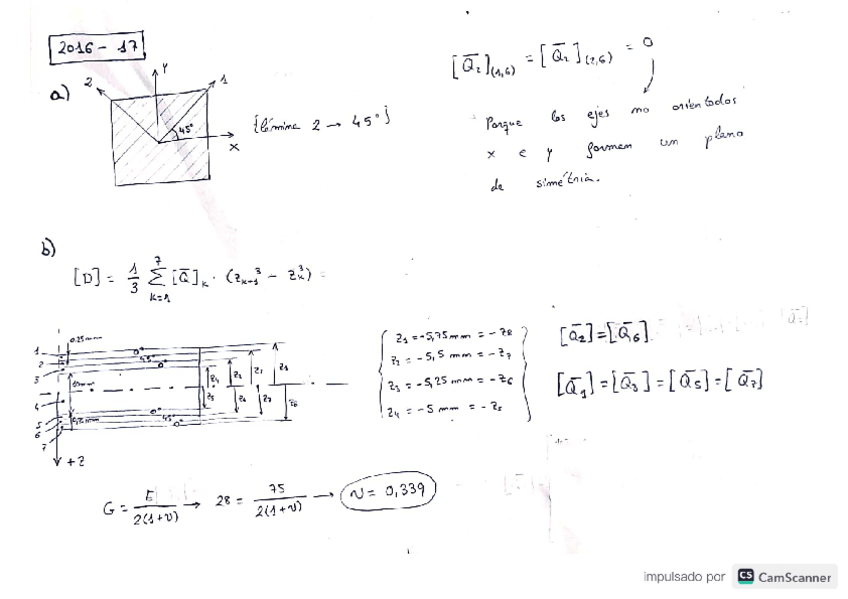 2016 - 17
a)
2
Y
1
45°
X
{lámina 2 → 45°}
[Q̄₂](1,6) = [Q̄₂](2,6) = 0
Porque los ejes no orientados
x e y forman un plano
de simetría.
b)
[D] = 1/3 Σ(k=1, 7) [Q̄]k · (z³k+1 - z³k) =
0.25mm
1
2
3
4
5
6
7
0°
45°
0°
0°
45°
0°
+z
z₁ = -5,75 mm = -z₈
z₂ = -5,5 mm = -z₇
z₃ = -5,25 mm = -z₆
z₄ = -5 mm = -z₅
[Q̄₂]=[Q̄₆]
[Q̄₁]=[Q̄₃]=[Q̄₅]=[Q̄₇]
G = E / 2(1+ν) → 28 = 75 / 2(1+ν) → ν = 0,339
impulsado por CS CamScanner